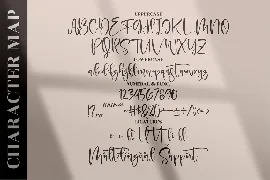 CHARACTER MAP
UPPERCASE
ABCDEFGHIJKLMNO
PQRSTUVWXYZ
LOWERCASE
abcdefghijklmnopqrstuvwxyz
NUMERAL & PUNC
1234567890
LIGATURES
Multilingual Support